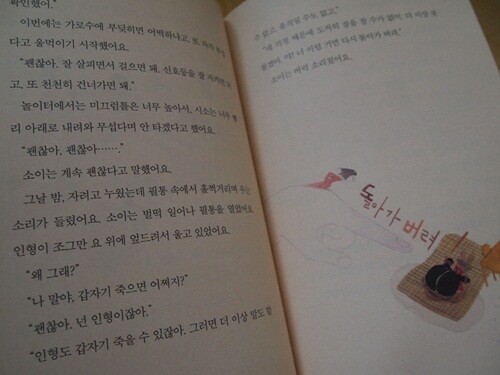 확인했어."
이번에는 가로수에 부딪히면 어떡하냐고, 또 자꾸
다고 울먹이기 시작했어요.
"괜찮아. 잘 살피면서 걸으면 돼. 신호등을 잘 지키면
고, 또 천천히 건너가면 돼."
놀이터에서는 미끄럼틀은 너무 높아서, 시소는 너무
리 아래로 내려와 무섭다며 안 타겠다고 했어요.
"괜찮아. 괜찮아……."
소이는 계속 괜찮다고 말했어요.
그날 밤, 자려고 누웠는데 필통 속에서 훌쩍거리며 우는
소리가 들렸어요. 소이는 벌떡 일어나 필통을 열었어요.
인형이 조그만 요 위에 엎드려서 울고 있었어요.
"왜 그래?"
"나 말야. 갑자기 죽으면 어쩌지?"
"괜찮아. 넌 인형이잖아."
"인형도 갑자기 죽을 수 있잖아. 그러면 더 이상 말도 할
수 없고, 움직일 수도 없고."
"네 걱정 때문에 도저히 잠을 잘 수가 없어. 더 이상 못
참겠어. 야! 너 이럴 거면 다시 돌아가 버려."
소이는 버럭 소리쳤어요.
돌아가 버려